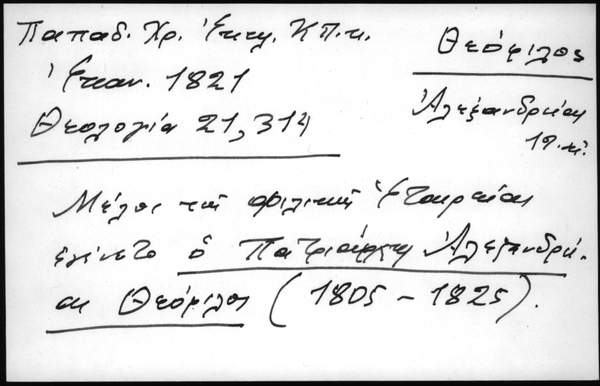 Παπαδ. Χρ. Ἐκκλ. Κπ.κ.
Ἐπαν. 1821
Θεολογία 21, 314
Θεόφιλος
Ἀλεξανδρείας
19. αἰ.
Μέλος τῆς Φιλικῆς Ἑταιρείας
ἐγένετο ὁ Πατριάρχης Ἀλεξανδρεί-
ας Θεόφιλος (1805 - 1825).